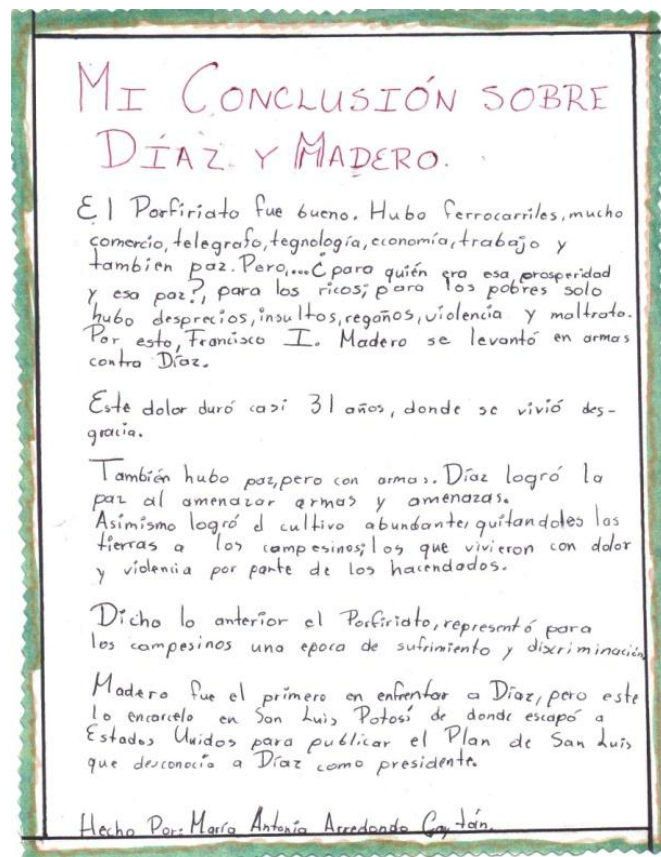 MI CONCLUSIÓN SOBRE
DÍAZ Y MADERO.
El Porfiriato fue bueno. Hubo ferrocarriles, mucho
comercio, telegrafo, tegnología, economía, trabajo y
tambien paz. Pero,...¿para quién era esa prosperidad
y esa paz?, para los ricos; para los pobres solo
hubo desprecios, insultos, regaños, violencia y maltrato.
Por esto, Francisco I. Madero se levantó en armas
contra Díaz.
Este dolor duró casi 31 años, donde se vivió des-
gracia.
También hubo paz, pero con armas. Díaz logró la
paz al amenazar armas y amenazas.
Asimismo logró el cultivo abundante, quitandoles las
tierras a los campesinos; los que vivieron con dolor
y violencia por parte de los hacendados.
Dicho lo anterior el Porfiriato, representó para
los campesinos una epoca de sufrimiento y discriminación
Madero fue el primero en enfrentar a Díaz, pero este
lo encarcelo en San Luis Potosí de donde escapó a
Estados Unidos para publicar el Plan de San Luis
que desconocía a Díaz como presidente.
Hecho Por: María Antonia Arredondo Gaytán.